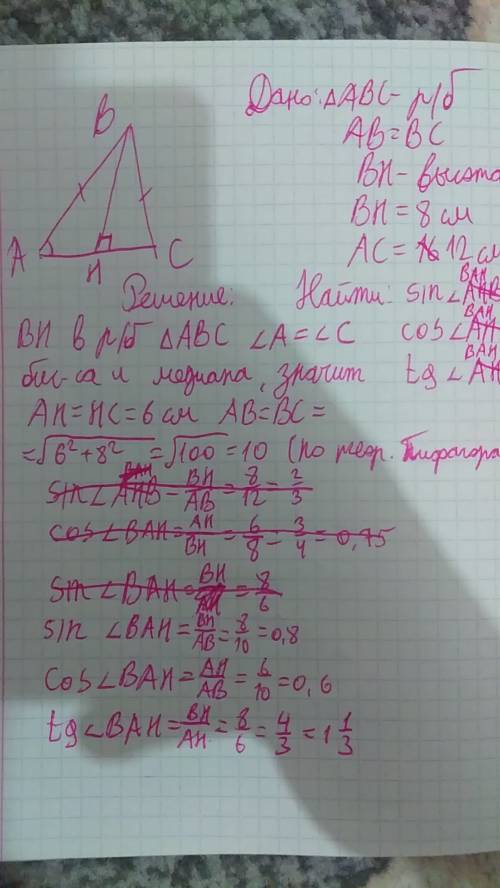 Дано: △ABC - р/б
AB = BC
BH - высота
BH = 8 см
AC = 12 см
B
A
H
C
Решение: Найти: sin∠BAH
BH в р/б △ABC ∠A = ∠C cos∠BAH
бис-са и медиана, значит tg∠BAH
AH = HC = 6 см AB = BC =
= √6² + 8² = √100 = 10 (по теор. Пифагора
sin∠BAH = BH/AB = 8/12 = 2/3
cos∠BAH = AH/BH = 6/8 = 3/4 = 0,75
sin∠BAH = BH/AH = 8/6
sin ∠BAH = BH/AB = 8/10 = 0,8
cos∠BAH = AH/AB = 6/10 = 0,6
tg∠BAH = BH/AH = 8/6 = 4/3 = 1 1/3